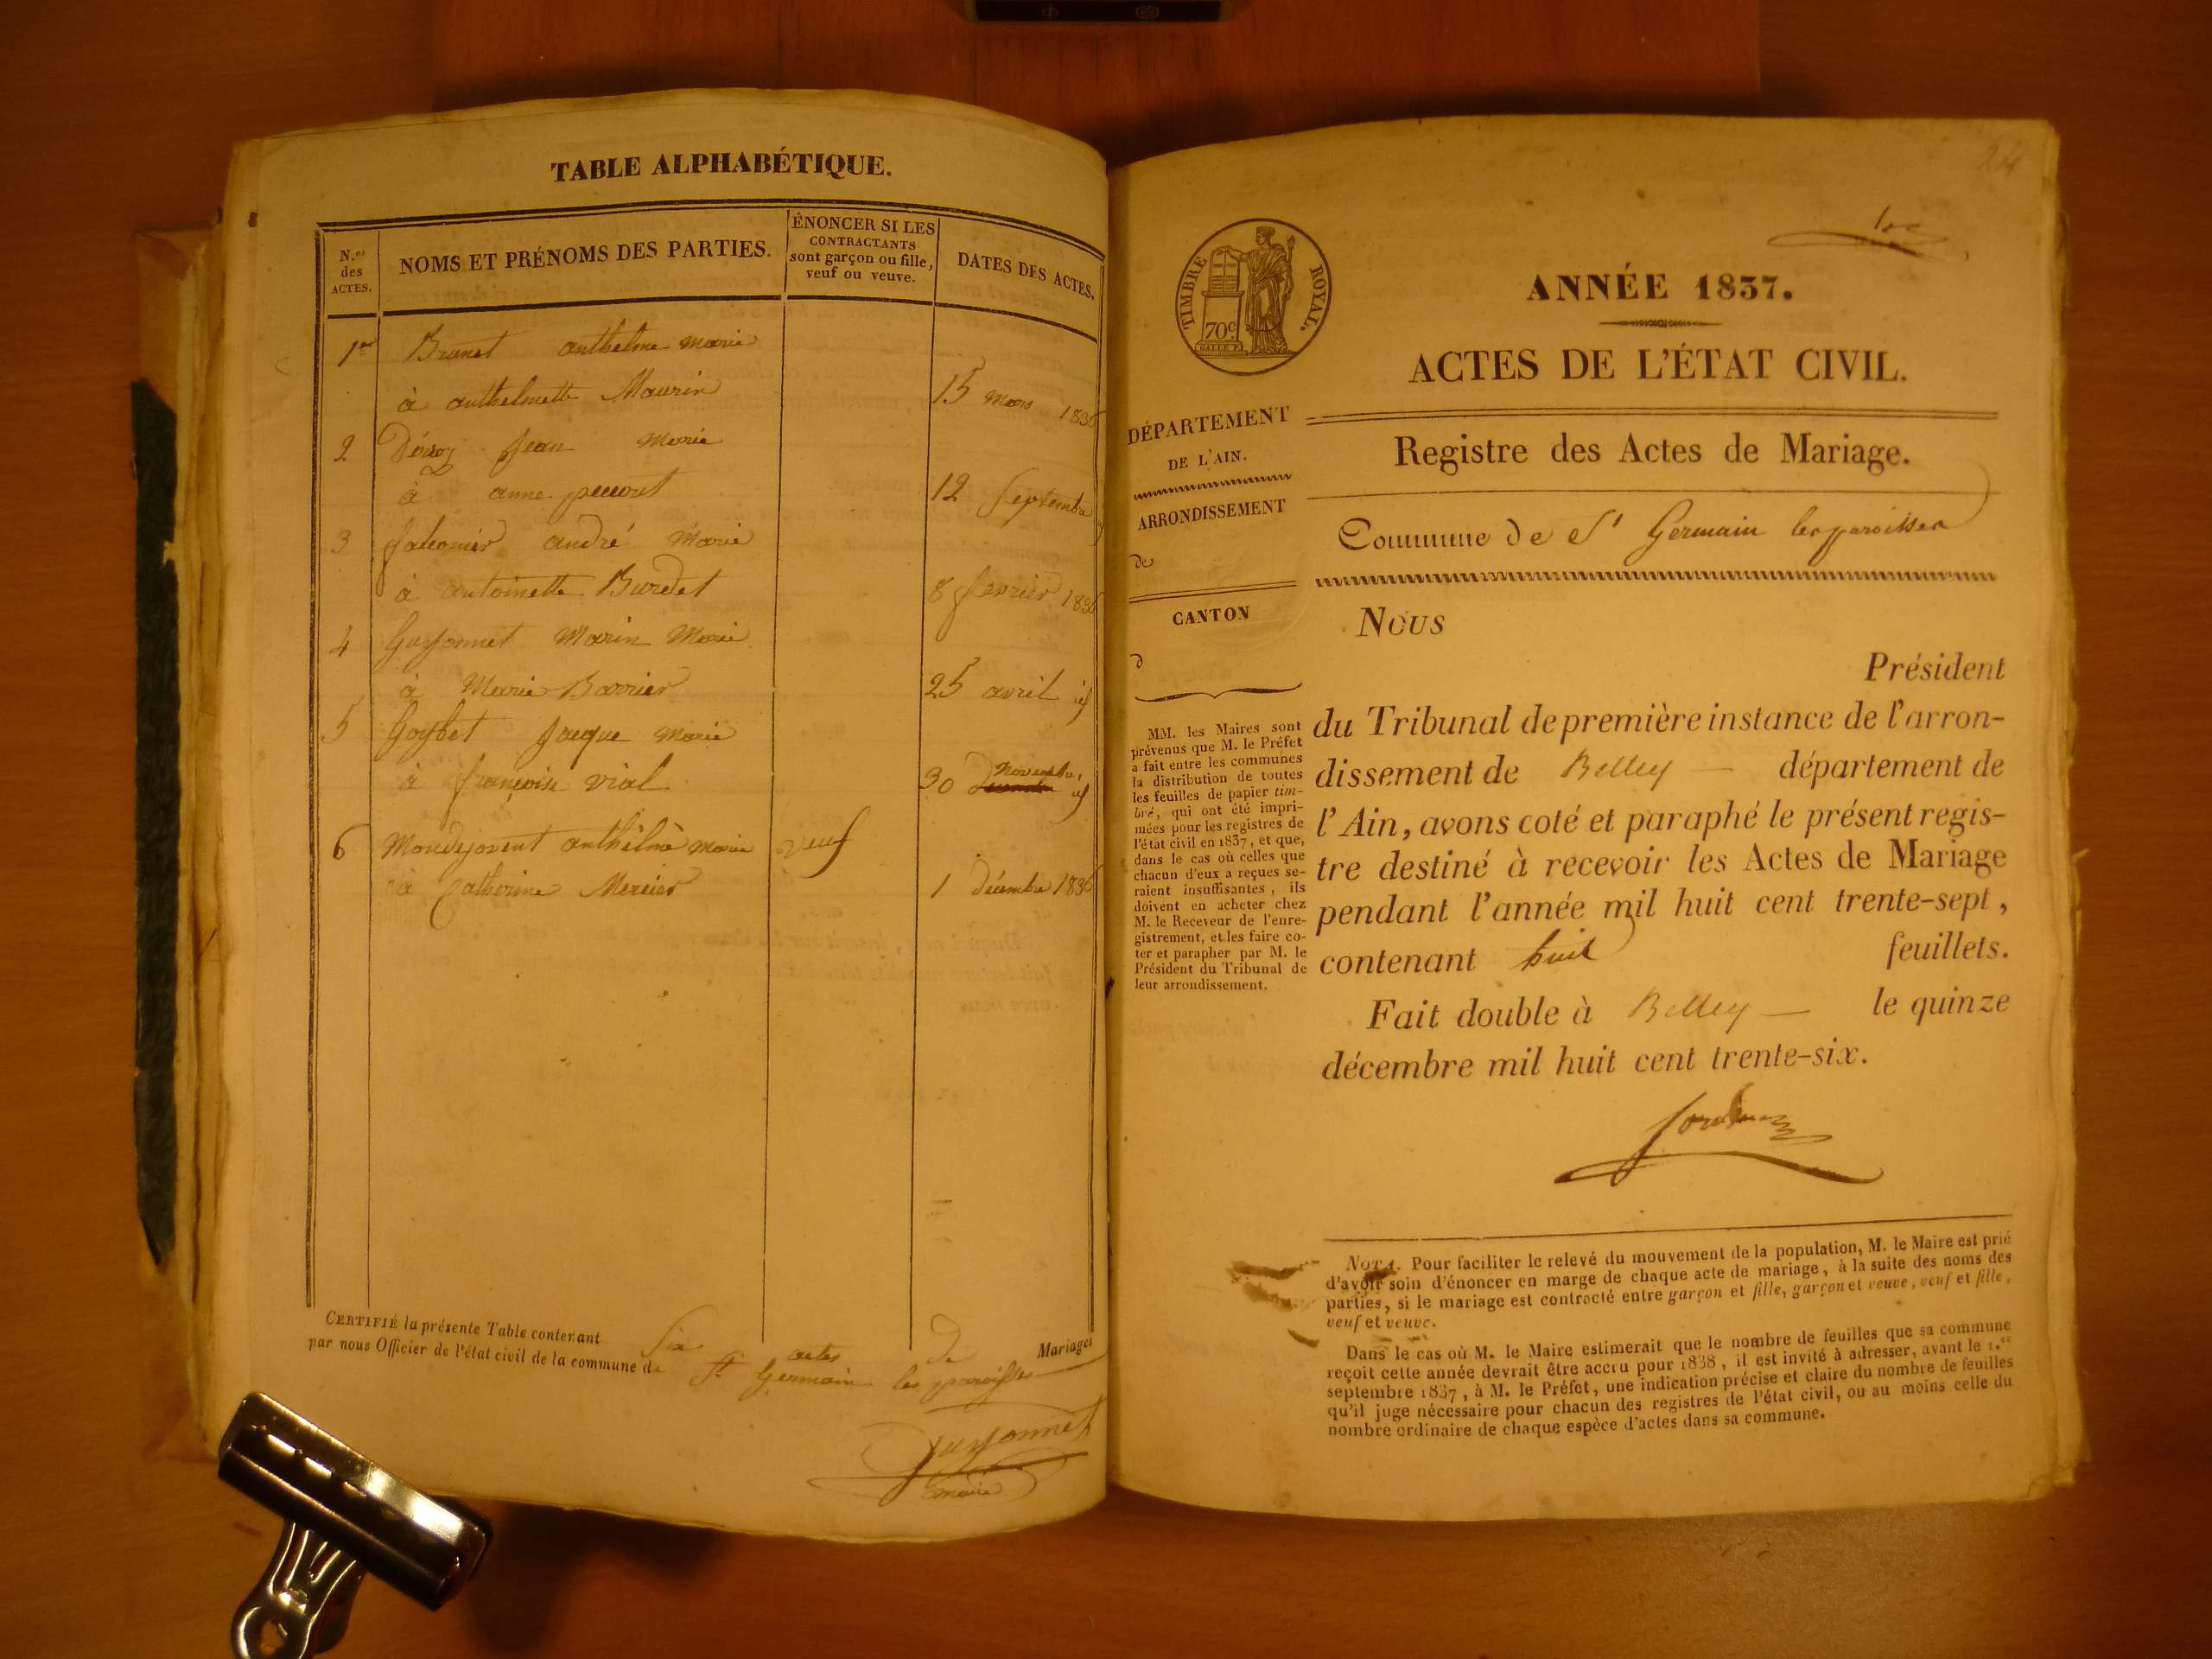 TABLE ALPHABÉTIQUE.
N.os des ACTES.
NOMS ET PRÉNOMS DES PARTIES.
ÉNONCER SI LES CONTRACTANTS sont garçon ou fille, veuf ou veuve.
DATES DES ACTES.
1er Brunet anthelme marié
à anthelmette Maurin 15 mars 1836
2 Jean marié
à anne 12 septembre
3 falconier andré Marié
à antoinette Burdet 8 fevrier 1836
4 Guyonnet Marin Marié
à Marie Barrier 25 avril id
5 Goybet Jacque marié
à françoise vial 30 novembre id
6 Mondejovent anthèlme marié veuf
à Catherine Mercier 1 décembre 1836
CERTIFIÉ la présente Table contenant six actes de Mariages
par nous Officier de l'état civil de la commune de St Germain les paroisses
Guyonnet
maire
24
TIMBRE ROYAL.
70c.
ANNÉE 1837.
ACTES DE L'ÉTAT CIVIL.
DÉPARTEMENT
DE L'AIN.
ARRONDISSEMENT
de
CANTON
d
Registre des Actes de Mariage.
Commune de St Germain les paroisses
MM. les Maires sont
prévenus que M. le Préfet
a fait entre les communes
la distribution de toutes
les feuilles de papier tim-
bré, qui ont été impri-
mées pour les registres de
l'état civil en 1837, et que,
dans le cas où celles que
chacun d'eux a reçues se-
raient insuffisantes, ils
doivent en acheter chez
M. le Receveur de l'enre-
gistrement, et les faire co-
ter et parapher par M. le
Président du Tribunal de
leur arrondissement.
Nous
Président
du Tribunal de première instance de l'arron-
dissement de Belley — département de
l'Ain, avons coté et paraphé le présent regis-
tre destiné à recevoir les Actes de Mariage
pendant l'année mil huit cent trente-sept,
contenant huit feuillets.
Fait double à Belley — le quinze
décembre mil huit cent trente-six.
NOTA. Pour faciliter le relevé du mouvement de la population, M. le Maire est prié
d'avoir soin d'énoncer en marge de chaque acte de mariage, à la suite des noms des
parties, si le mariage est contracté entre garçon et fille, garçon et veuve, veuf et fille,
veuf et veuve.
Dans le cas où M. le Maire estimerait que le nombre de feuilles que sa commune
reçoit cette année devrait être accru pour 1838, il est invité à adresser, avant le 1.er
septembre 1837, à M. le Préfet, une indication précise et claire du nombre de feuilles
qu'il juge nécessaire pour chacun des registres de l'état civil, ou au moins celle du
nombre ordinaire de chaque espèce d'actes dans sa commune.